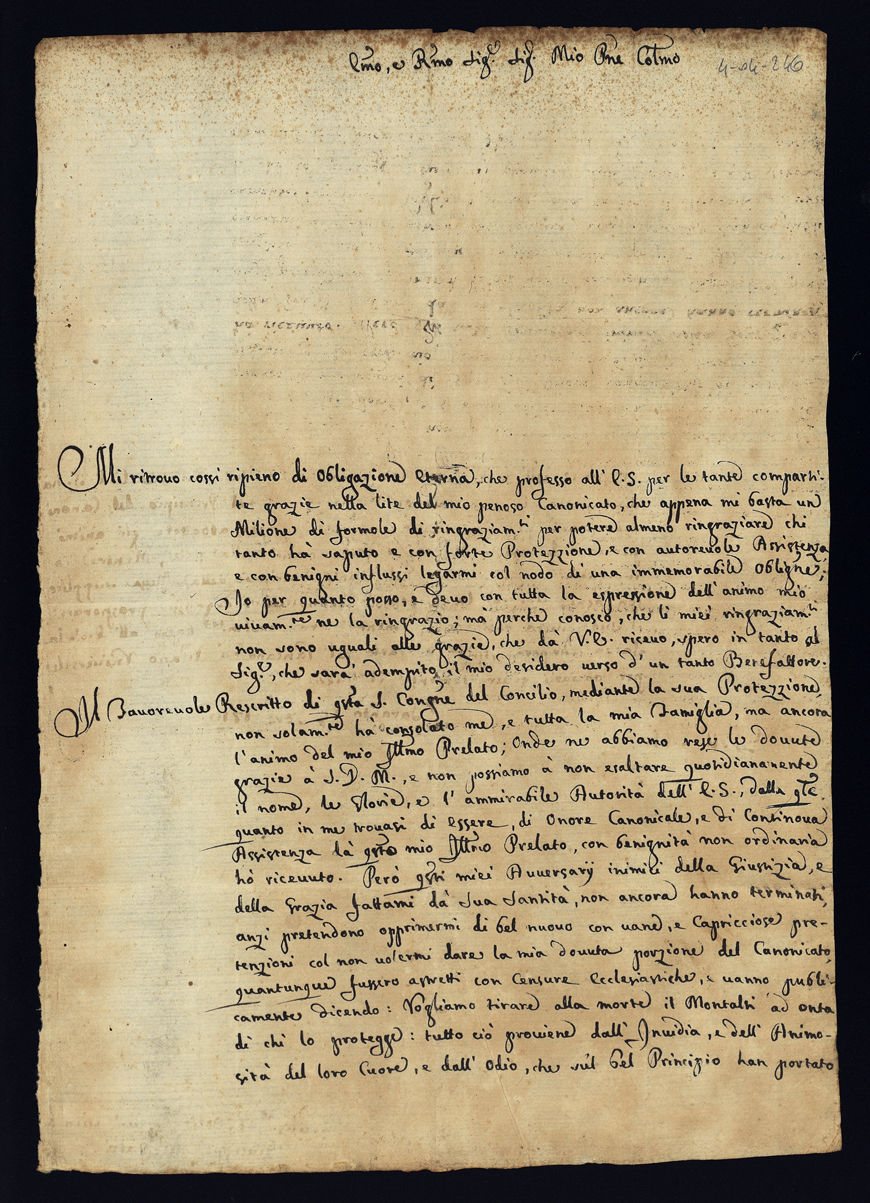 Emo, e Rmo Sigr. Sig. Mio Pne Colmo
4-04-246
Mi ritrouo cossi ripieno di Obligazione Eterna, che professo all' E.S. per le tante comparti-
te grazie nella lite del mio penoso Canonicato, che appena mi basta un
Milione di formole di ringraziam.ti per potere almeno ringraziare chi
tanto hà saputo e con forte Protezzione, e con autoreuole Assistenza
e con benigni influssi legarmi col nodo di una immemorabile Obligne;
Io per quanto posso, e deuo con tutta la espressione dell' animo mio
viuam.te ne la ringrazio; mà perche conosco, che li miei ringraziam.ti
non sono uguali alle grazie, che dà V.E. riceuo, spero in tanto al
Sigr., che sarà adempito il mio desidero verso d' un tanto Benefattore.
Il Fauoreuole Rescritto di qsta S. Congne del Concilio, mediante la sua Protezzione,
non solam.te hà consolato me, e tutta la mia Famiglia, ma ancora
l' animo del mio Illmo Prelato; Onde ne abbiamo rese le douute
grazie à S.D.M., e non possiamo à non esaltare quotidianamente
il nome, le Glorie, e l' ammirabile Autorità dell' E.S., dalla qle
quanto in me trouasi di essere, di Onore Canonicale, e di Continoua
Assistenza là qsto mio Illmo Prelato, con benignità non ordinaria
hò riceuuto. Però qsti miei Auuersarij inimici della Giustizia, e
della Grazia fattami dà Sua Santità, non ancora hanno terminati,
anzi pretendono opprimermi di bel nuouo con uane, e Capricciose pre-
tenzioni col non uolermi dare la mia douuta porzione del Canonicato,
quantunque fussero astretti con Censure Ecclesiastiche, e uanno publi-
camente dicendo: Vogliamo tirare alla morte il Montalti ad onta
di chi lo protegge: tutto ciò prouiene dall' Inuidia, e dell' Animo-
sità del loro Cuore, e dall' Odio, che sul bel Principio han portato